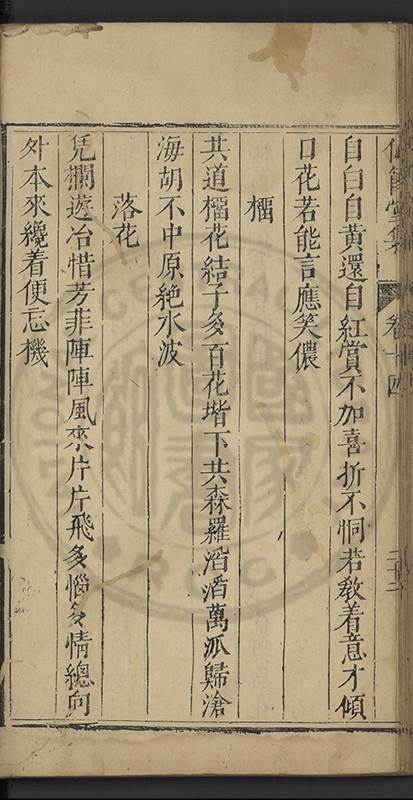 仙館堂集　卷十四
自白自黃還自紅賞不加喜折不恫若教着意才傾
口花若能言應笑儂
橊
共道橊花結子多百花堦下共森羅滔滔萬派歸滄
海胡不中原絶水波
落花
凭欄遊冶惜芳菲陣陣風來片片飛多惱多情總向
外本來纔着便忘機